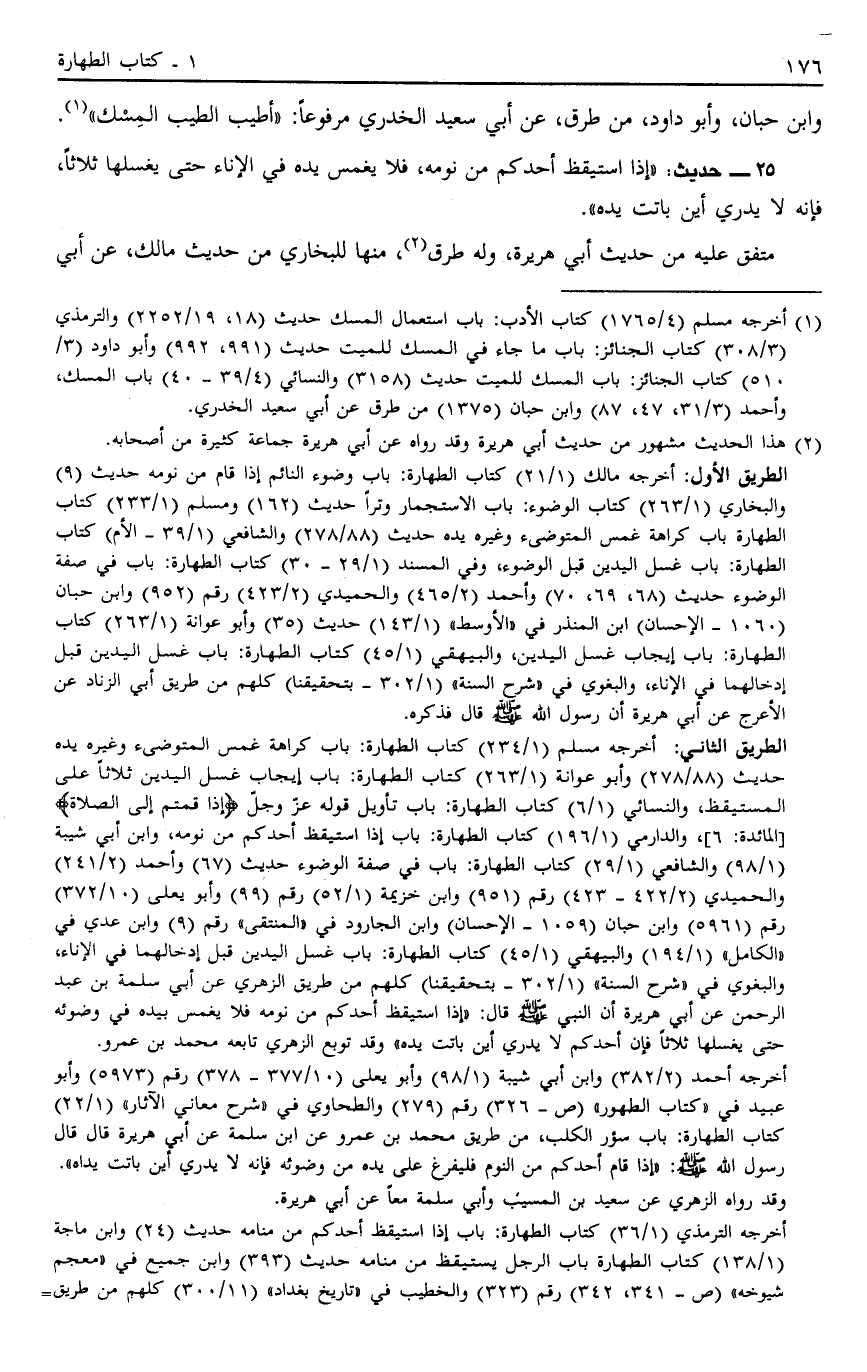 ١٧٦
١ - كتاب الطهارة
وابن حبان، وأبو داود، من طرق، عن أبي سعيد الخدري مرفوعاً: «أطيب الطيب المِسْك»(١).
٢٥ — حديث: «إذا استيقظ أحدكم من نومه، فلا يغمس يده في الإناء حتى يغسلها ثلاثاً،
فإنه لا يدري أين باتت يده».
متفق عليه من حديث أبي هريرة، وله طرق(٢)، منها للبخاري من حديث مالك، عن أبي
(١) أخرجه مسلم (١٧٦٥/٤) كتاب الأدب: باب استعمال المسك حديث (١٨، ٢٢٥٢/١٩) والترمذي
(٣٠٨/٣) كتاب الجنائز: باب ما جاء في المسك للميت حديث (٩٩١، ٩٩٢) وأبو داود (٣/
٥١٠) كتاب الجنائز: باب المسك للميت حديث (٣١٥٨) والنسائي (٣٩/٤ - ٤٠) باب المسك،
وأحمد (٣١/٣، ٤٧، ٨٧) وابن حبان (١٣٧٥) من طرق عن أبي سعيد الخدري.
(٢) هذا الحديث مشهور من حديث أبي هريرة وقد رواه عن أبي هريرة جماعة كثيرة من أصحابه.
الطريق الأول: أخرجه مالك (٢١/١) كتاب الطهارة: باب وضوء النائم إذا قام من نومه حديث (٩)
والبخاري (٢٦٣/١) كتاب الوضوء: باب الاستجمار وتراً حديث (١٦٢) ومسلم (٢٣٣/١) كتاب
الطهارة باب كراهة غمس المتوضىء وغيره يده حديث (٢٧٨/٨٨) والشافعي (٣٩/١ - الأم) كتاب
الطهارة: باب غسل اليدين قبل الوضوء، وفي المسند (٢٩/١ - ٣٠) كتاب الطهارة: باب في صفة
الوضوء حديث (٦٨، ٦٩، ٧٠) وأحمد (٤٦٥/٢) والحميدي (٤٢٣/٢) رقم (٩٥٢) وابن حبان
(١٠٦٠ - الإحسان) ابن المنذر في «الأوسط» (١٤٣/١) حديث (٣٥) وأبو عوانة (٢٦٣/١) كتاب
الطهارة: باب إيجاب غسل اليدين، والبيهقي (٤٥/١) كتاب الطهارة: باب غسل اليدين قبل
إدخالهما في الإناء، والبغوي في «شرح السنة» (٣٠٢/١ - بتحقيقنا) كلهم من طريق أبي الزناد عن
الأعرج عن أبي هريرة أن رسول الله ﷺ قال فذكره.
الطريق الثاني: أخرجه مسلم (٢٣٤/١) كتاب الطهارة: باب كراهة غمس المتوضىء وغيره يده
حديث (٢٧٨/٨٨) وأبو عوانة (٢٦٣/١) كتاب الطهارة: باب إيجاب غسل اليدين ثلاثاً على
المستيقظ، والنسائي (٦/١) كتاب الطهارة: باب تأويل قوله عزّ وجلّ ﴿إذا قمتم إلى الصلاة﴾
[المائدة: ٦]، والدارمي (١٩٦/١) كتاب الطهارة: باب إذا استيقظ أحدكم من نومه، وابن أبي شيبة
(٩٨/١) والشافعي (٢٩/١) كتاب الطهارة: باب في صفة الوضوء حديث (٦٧) وأحمد (٢٤١/٢)
والحميدي (٤٢٢/٢ - ٤٢٣) رقم (٩٥١) وابن خزيمة (٥٢/١) رقم (٩٩) وأبو يعلى (٣٧٢/١٠)
رقم (٥٩٦١) وابن حبان (١٠٥٩ - الإحسان) وابن الجارود في «المنتقى» رقم (٩) وابن عدي في
«الكامل» (١٩٤/١) والبيهقي (٤٥/١) كتاب الطهارة: باب غسل اليدين قبل إدخالهما في الإناء،
والبغوي في «شرح السنة» (٣٠٢/١ - بتحقيقنا) كلهم من طريق الزهري عن أبي سلمة بن عبد
الرحمن عن أبي هريرة أن النبي ﷺ قال: «إذا استيقظ أحدكم من نومه فلا يغمس بيده في وضوئه
حتى يغسلها ثلاثاً فإن أحدكم لا يدري أين باتت يده» وقد توبع الزهري تابعه محمد بن عمرو.
أخرجه أحمد (٣٨٢/٢) وابن أبي شيبة (٩٨/١) وأبو يعلى (٣٧٧/١٠ - ٣٧٨) رقم (٥٩٧٣) وأبو
عبيد في «كتاب الطهور» (ص - ٣٢٦) رقم (٢٧٩) والطحاوي في «شرح معاني الآثار» (٢٢/١)
كتاب الطهارة: باب سؤر الكلب، من طريق محمد بن عمرو عن ابن سلمة عن أبي هريرة قال قال
رسول الله ﷺ: «إذا قام أحدكم من النوم فليفرغ على يده من وضوئه فإنه لا يدري أين باتت يداه».
وقد رواه الزهري عن سعيد بن المسيب وأبي سلمة معاً عن أبي هريرة.
أخرجه الترمذي (٣٦/١) كتاب الطهارة: باب إذا استيقظ أحدكم من منامه حديث (٢٤) وابن ماجة
(١٣٨/١) كتاب الطهارة باب الرجل يستيقظ من منامه حديث (٣٩٣) وابن جميع في «معجم
شيوخه» (ص - ٣٤١، ٣٤٢) رقم (٣٢٣) والخطيب في «تاريخ بغداد» (٣٠٠/١١) كلهم من طريق=